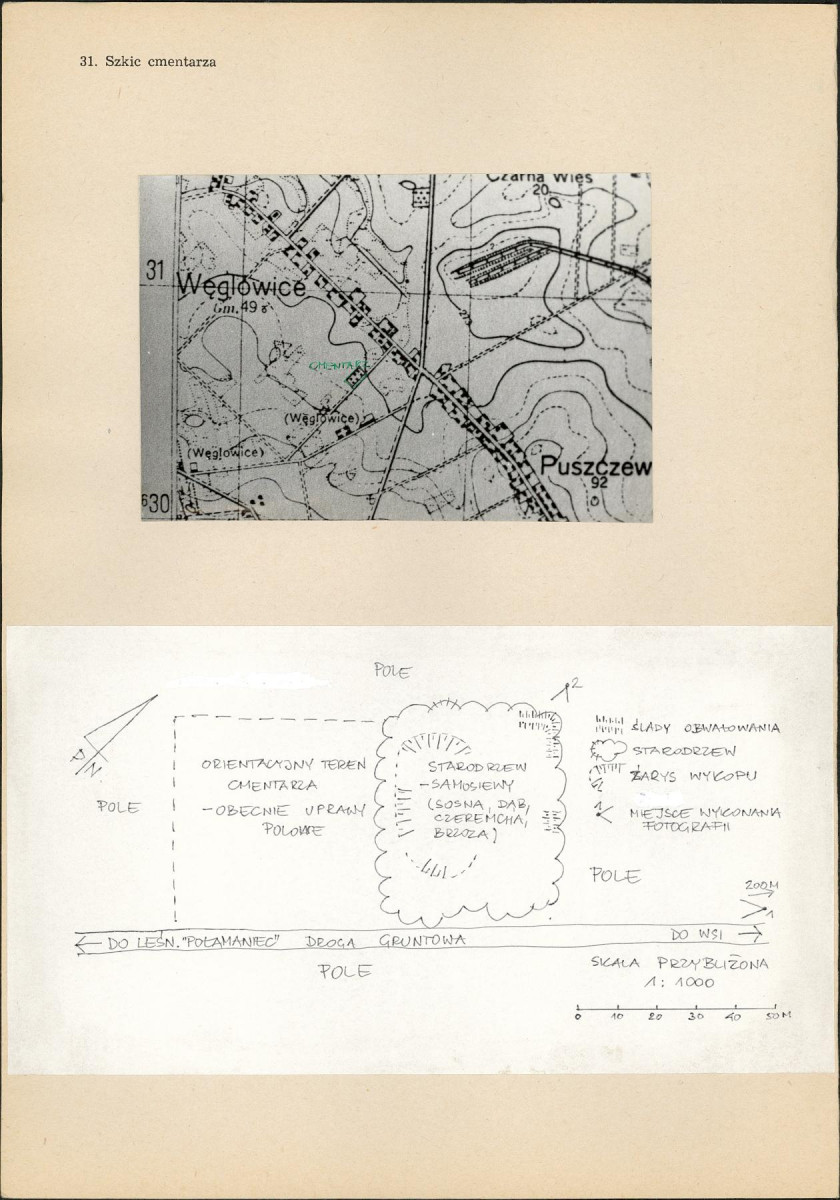 31. Szkic cmentarza
Czarna Wieś
20
31
Węglowice
Gm. 49
CMENTARZ
(Węglowice)
(Węglowice)
Puszczew
92
630
POLE
2
ŚLADY OBWAŁOWANIA
ORIENTACYJNY TEREN
CMENTARZA
– OBECNIE UPRAWY
POLOWE
STARODRZEW
– SAMOSIEWY
(SOSNA, DĄB,
CZEREMCHA,
BRZOZA)
STARODRZEW
ZARYS WYKOPU
MIEJSCE WYKONANIA
FOTOGRAFII
N
POLE
POLE
200M
1
← DO LEŚN. "POŁAMANIEC" DROGA GRUNTOWA DO WSI →
POLE
SKALA PRZYBLIŻONA
1:1000
0 10 20 30 40 50M